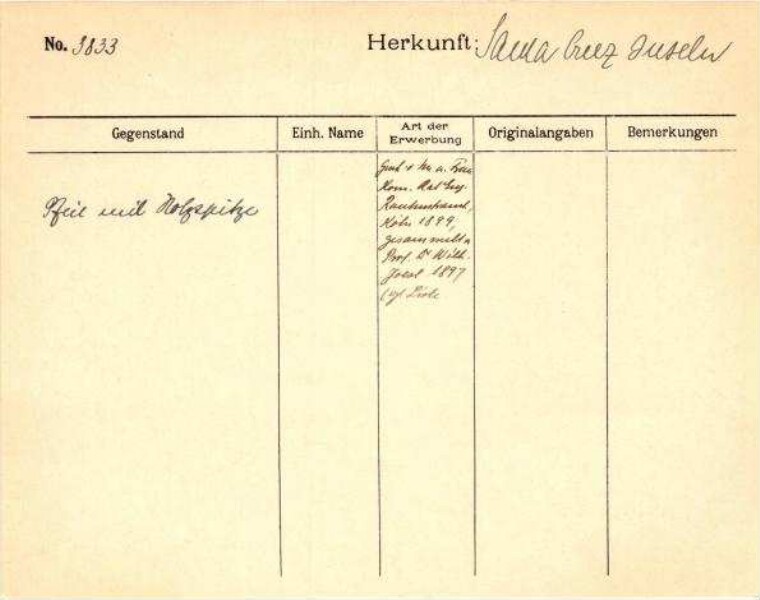 No. 3833
Herkunft: Santa Cruz Inseln
Gegenstand
Einh. Name
Art der Erwerbung
Originalangaben
Bemerkungen
Pfeil mit Holzspitze
Gesch. v. Hrn. u. Frau
Kom. Rat Eug.
Rautenstrauch,
Köln 1899,
gesammelt v.
Prof. Dr Wilh.
Joest 1897
(vgl Liste